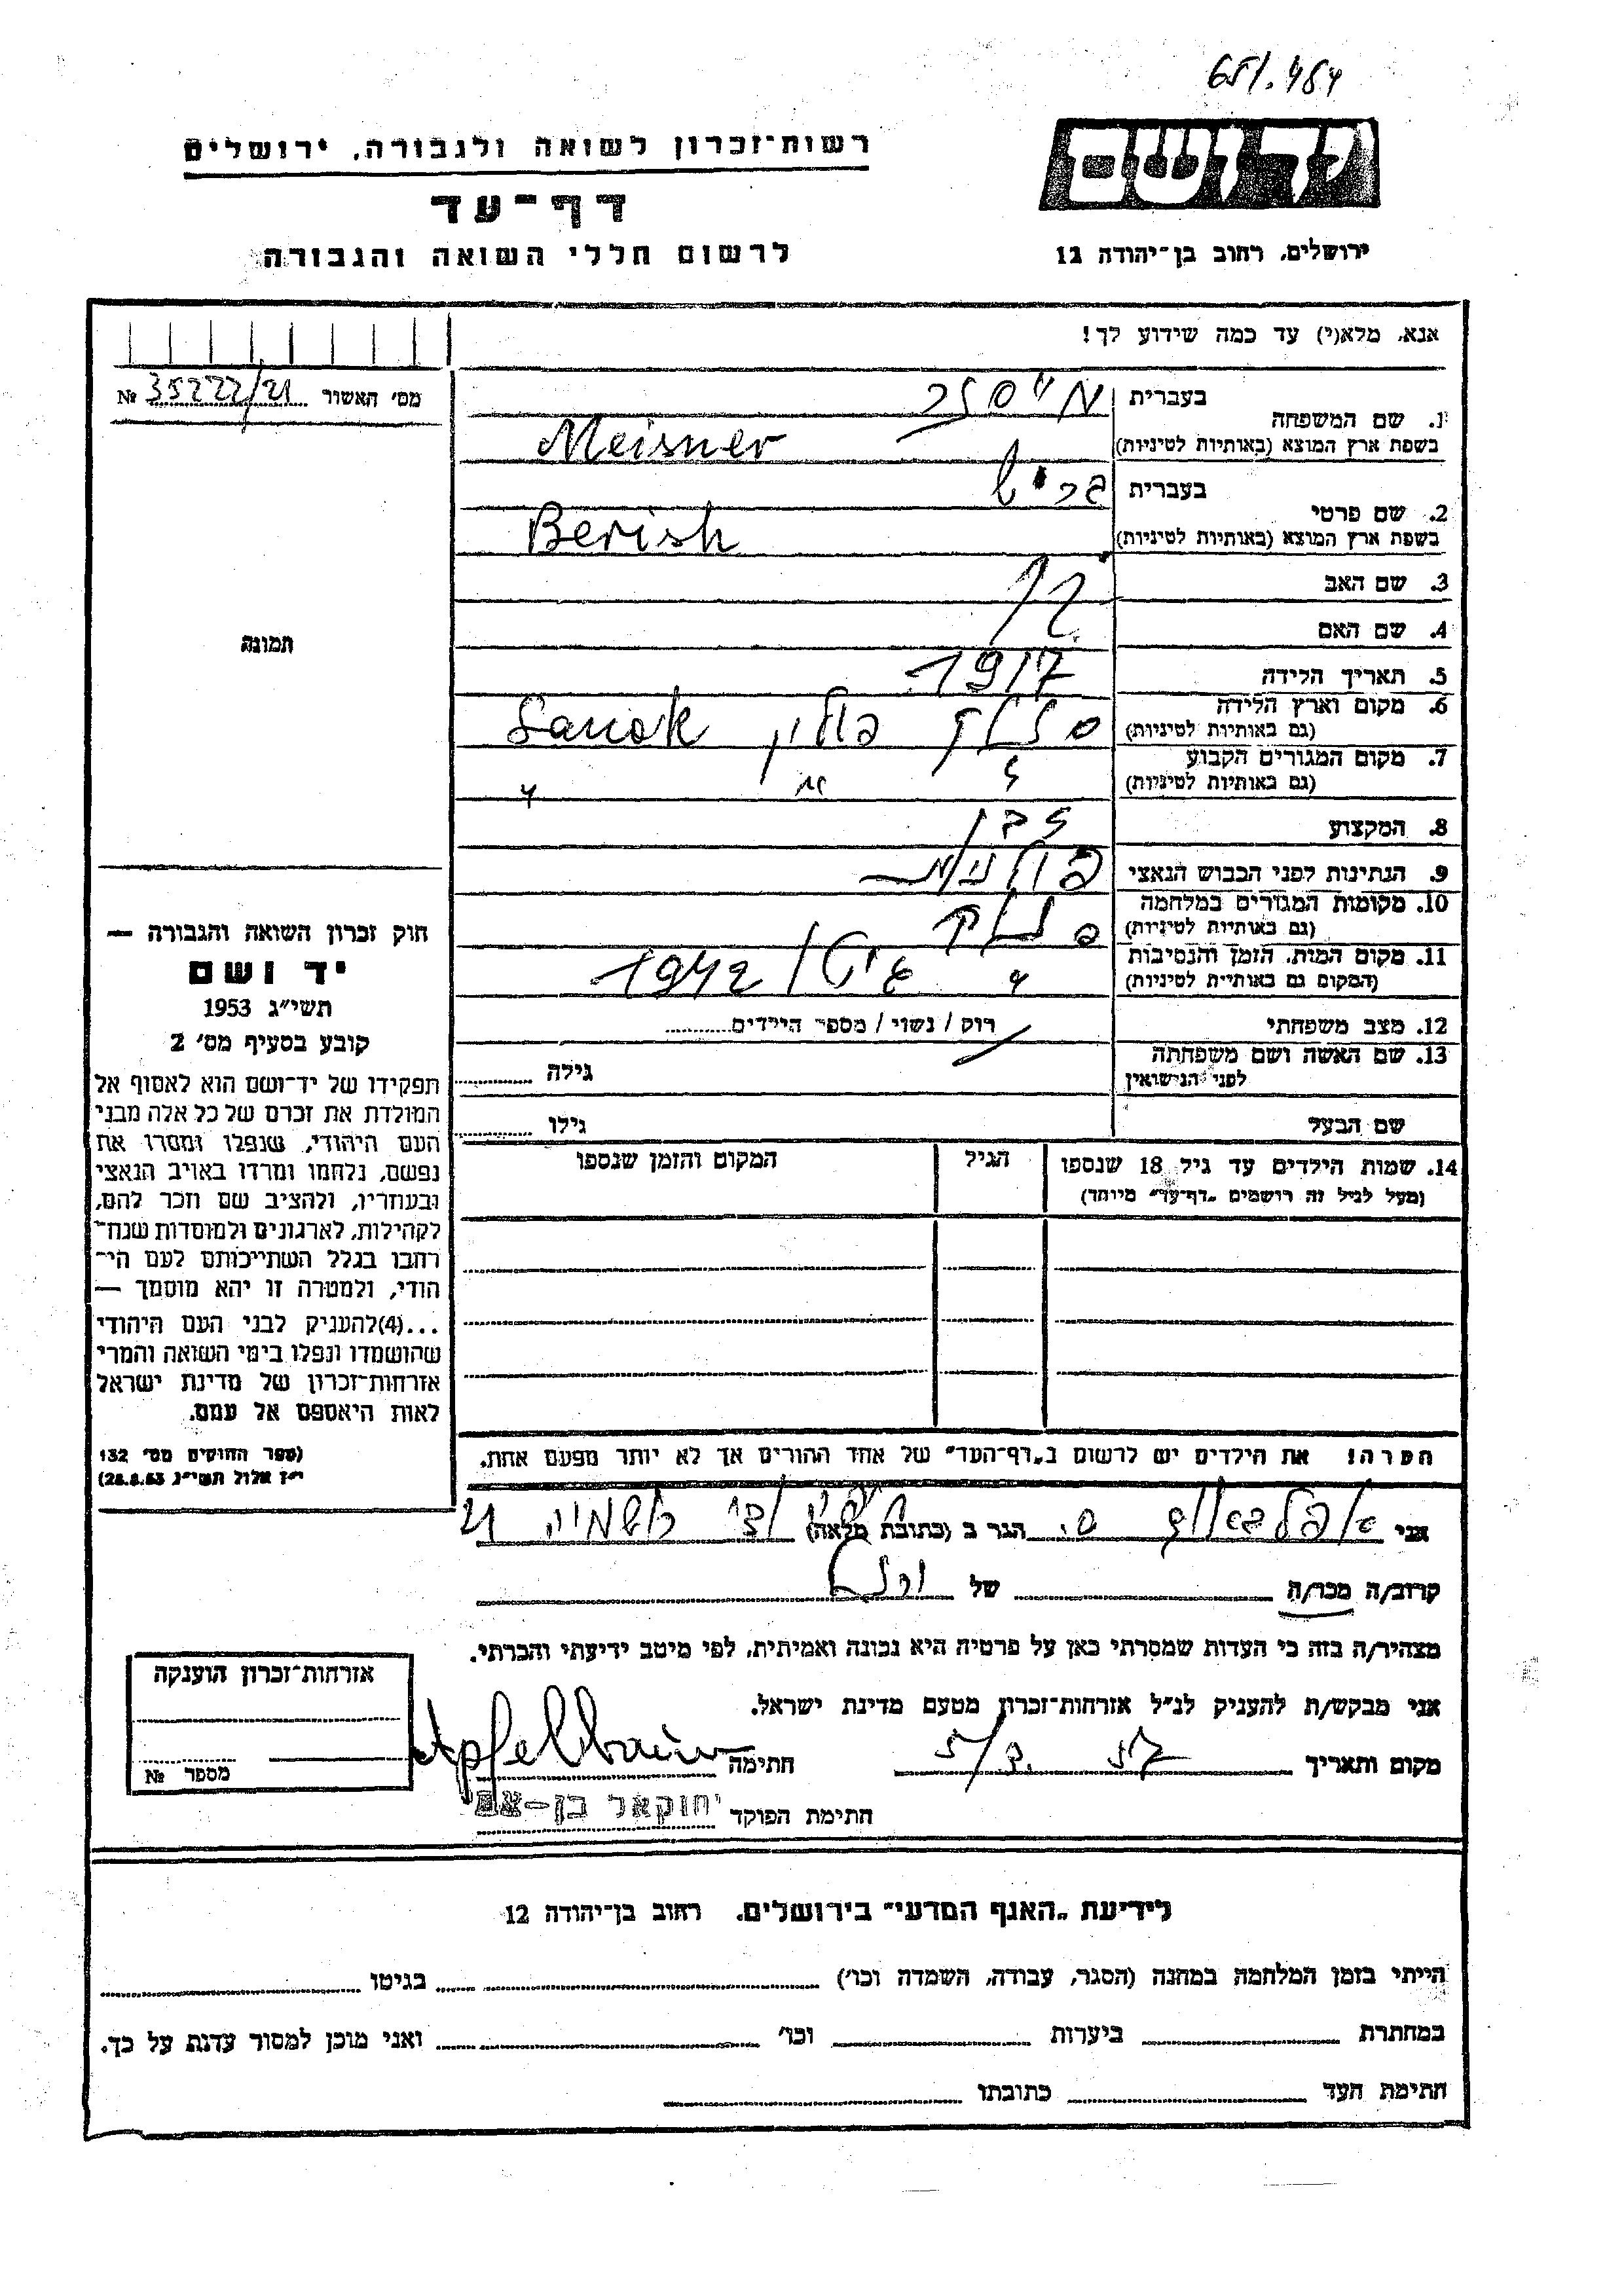 651.454
רשות־זכרון לשואה ולגבורה, ירושלים
יד ושם
דף־עד
לרשום חללי השואה והגבורה
ירושלים, רחוב בן־יהודה 12
אנא, מלא(י) עד כמה שידוע לך!
מס׳ האשור 35222/21 №
1. שם המשפחה בעברית מייסנר
בשפת ארץ המוצא (באותיות לטיניות) Meisner
2. שם פרטי בעברית בריש
בשפת ארץ המוצא (באותיות לטיניות) Berish
3. שם האב
4. שם האם
תמונה
5. תאריך הלידה 1917
6. מקום וארץ הלידה סנוק פולין Sanok
(גם באותיות לטיניות)
7. מקום המגורים הקבוע
(גם באותיות לטיניות)
8. המקצוע
9. הנתינות לפני הכבוש הנאצי פולנית
10. מקומות המגורים במלחמה סנוק
(גם באותיות לטיניות)
11. מקום המות, הזמן והנסיבות גיטו 1942
(המקום גם באותיות לטיניות)
12. מצב משפחתי רווק / נשוי / מספר הילדים
13. שם האשה ושם משפחתה גילה
לפני הנישואין
שם הבעל גילו
חוק זכרון השואה והגבורה —
יד ושם
תשי״ג 1953
קובע בסעיף מס׳ 2
תפקידו של יד־ושם הוא לאסוף אל
המולדת את זכרם של כל אלה מבני
העם היהודי, שנפלו ומסרו את
נפשם, נלחמו ומרדו באויב הנאצי
ובעוזריו, ולהציב שם וזכר להם,
לקהילות, לארגונים ולמוסדות שנח־
רבו בגלל השתייכותם לעם הי־
הודי, ולמטרה זו יהא מוסמך —
...(4)להעניק לבני העם היהודי
שהושמדו ונפלו בימי השואה והמרי
אזרחות־זכרון של מדינת ישראל
לאות היאספם אל עמם.
(ספר החוקים מס׳ 132
י״ז אלול תשי״ג 28.8.53)
14. שמות הילדים עד גיל 18 שנספו הגיל המקום והזמן שנספו
(מעל לגיל זה רושמים „דף־עד״ מיוחד)
הערה! את הילדים יש לרשום ב„דף־העד״ של אחד ההורים אך לא יותר מפעם אחת.
אני אפלבאום ס. הגר ב (כתובת מלאה) 21
קרוב/ה מכר/ה של
מצהיר/ה בזה כי העדות שמסרתי כאן על פרטיה היא נכונה ואמיתית, לפי מיטב ידיעתי והכרתי.
אני מבקש/ת להעניק לנ״ל אזרחות־זכרון מטעם מדינת ישראל.
מקום ותאריך 5/9. 57 חתימה Apfelbaum
חתימת הפוקד
אזרחות־זכרון הוענקה
מספר №
לידיעת „האגף המדעי״ בירושלים, רחוב בן־יהודה 12
הייתי בזמן המלחמה במחנה (הסגר, עבודה, השמדה וכו׳) בגיטו
במחתרת ביערות וכו׳ ואני מוכן למסור עדות על כך.
חתימת העד כתובתו